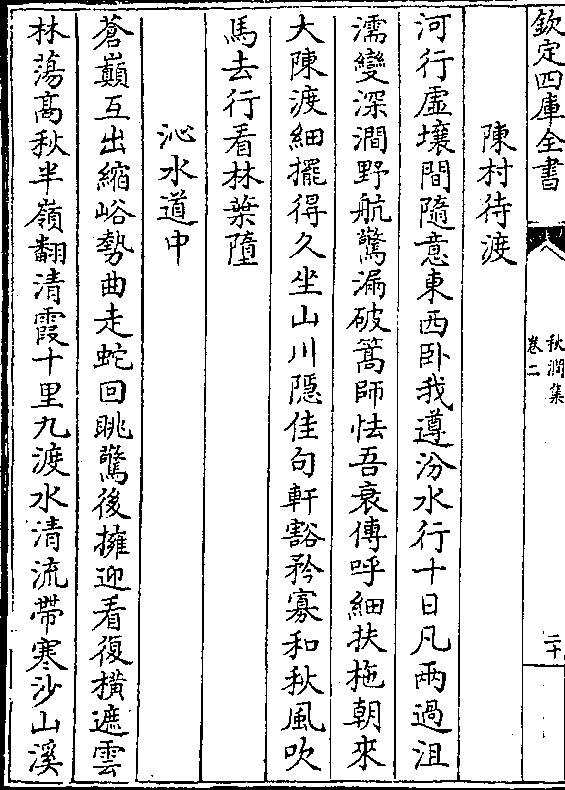 欽定四庫全書
秋澗集
卷二
二十
陳村待渡
河行虛壤間隨意東西卧我遵汾水行十日凡兩過沮
濡變深澗野航驚漏破篙師怯吾衰傳呼細扶柂朝來
大陳渡細擺得久坐山川隱佳句軒豁矜寡和秋風吹
馬去行看林葉墮
沁水道中
蒼巔互出縮峪勢曲走蛇回眺驚後擁迎看復橫遮雲
林蕩高秋半嶺翻清霞十里九渡水清流帶寒沙山溪